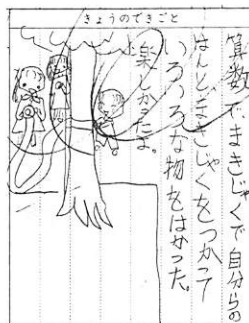 きょうのできごと
算数で、まきじゃくで自分らの
はんど、まきじゃくをつかって
いろいろな物をはかった。
楽しかったよ。